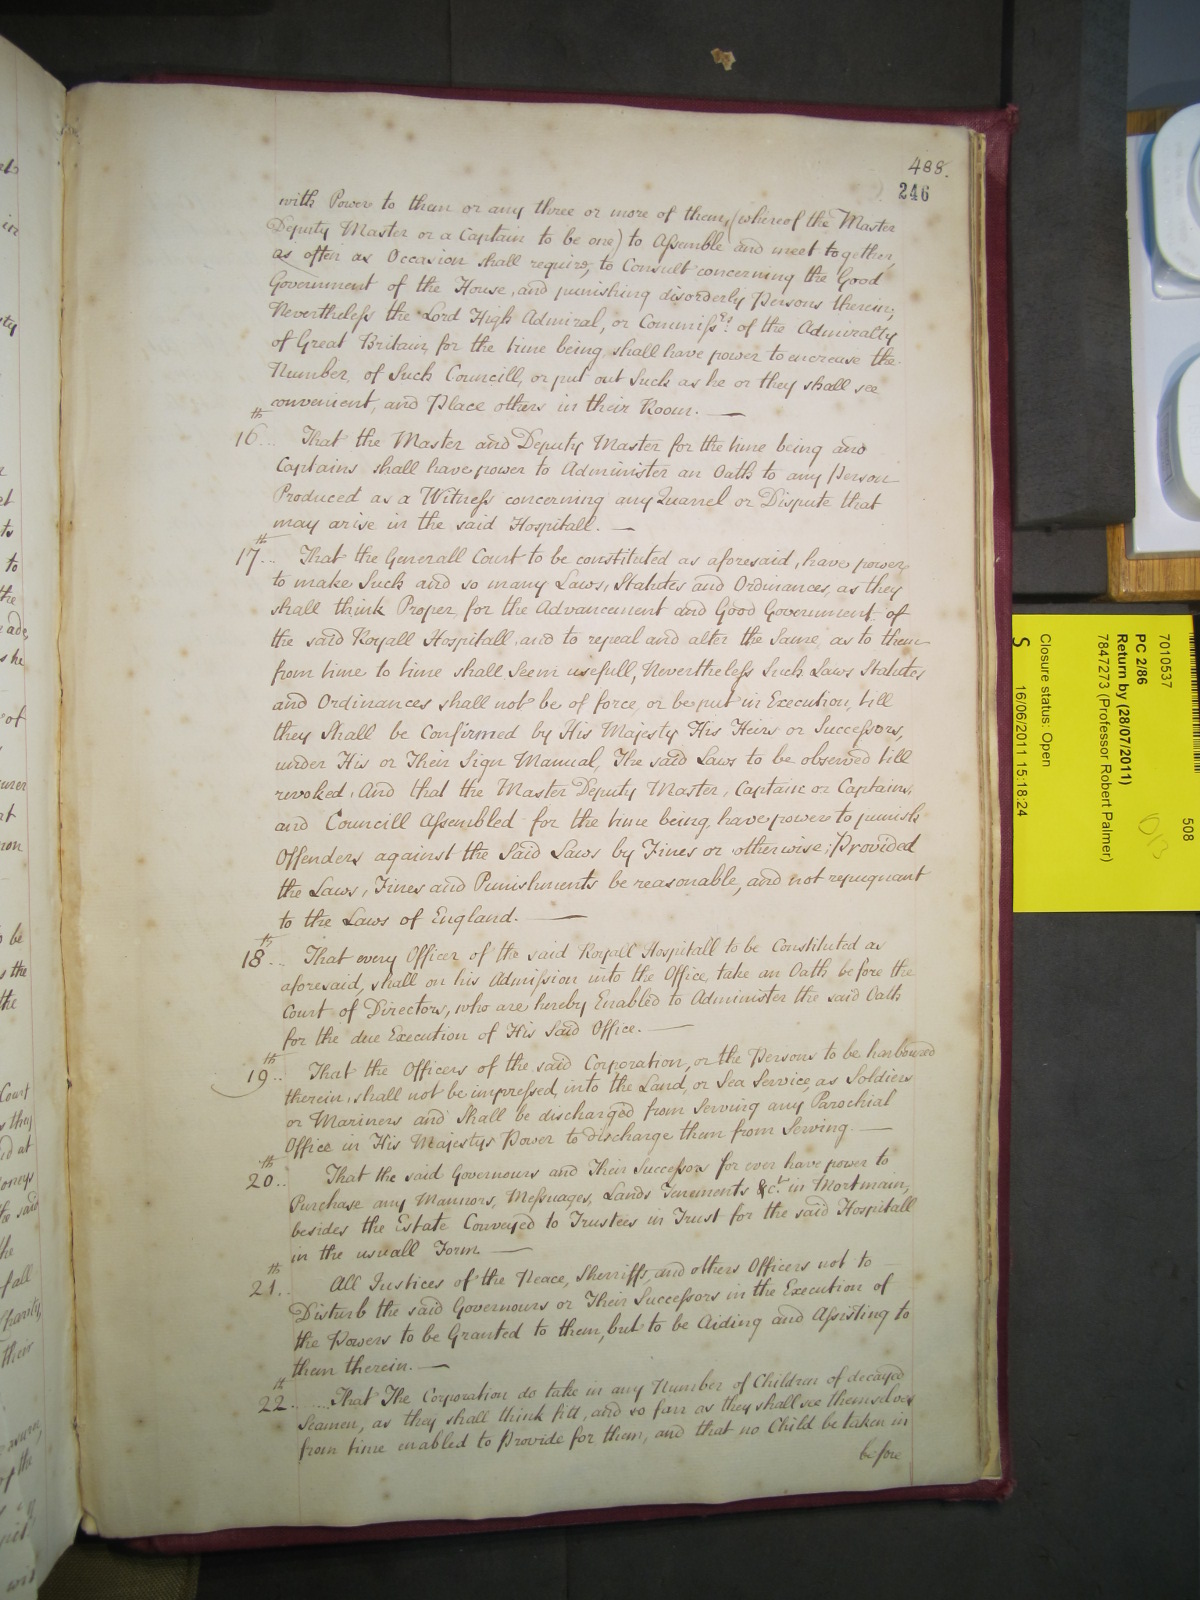 488.
246
with Power to them or any three or more of them, (whereof the Master
Deputy Master or a Captain to be one) to Assemble and meet together,
as often as Occasion shall require, to Consult concerning the Good
Government of the House, and punishing disorderly Persons therein;
Nevertheless the Lord High Admiral, or Commiss.rs of the Admiralty
of Great Britain, for the time being, shall have power to encrease the
Number, of Such Councill, or put out Such as he or they shall see
convenient, and Place others in their Room. —
16th.. That the Master and Deputy Master for the time being and
Captains shall have power to Administer an Oath to any Person
Produced as a Witness concerning any Quarrel or Dispute that
may arise in the said Hospitall. —
17th.. That the Generall Court to be constituted as aforesaid, have power
to make Such and so many Laws, Statutes and Ordinances, as they
shall think Proper, for the Advancement and Good Government of
the said Royall Hospitall and to repeal and alter the Same, as to them
from time to time shall Seem usefull, Nevertheless Such Laws Statutes
and Ordinances shall not be of force, or be put in Execution, till
they Shall be Confirmed by His Majesty His Heirs or Successors,
under His or Their Sign Manual, The said Laws to be observed till
revoked, And that the Master Deputy Master, Captain or Captains,
and Councill Assembled for the time being, have power to punish
Offenders against the Said Laws by Fines or otherwise; Provided
the Laws, Fines and Punishments be reasonable, and not repugnant
to the Laws of England. —
18th... That every Officer of the said Royall Hospitall to be Constituted as
aforesaid, shall on his Admission into the Office, take an Oath before the
Court of Directors, who are hereby Enabled to Administer the said Oath
for the due Execution of His Said Office. —
19th.. That the Officers of the said Corporation, or the Persons to be harboured
therein, shall not be impressed into the Land, or Sea Service, as Soldiers
or Mariners and Shall be discharged from Serving any Parochial
Office in His Majestys Power to discharge them from Serving. —
20th.. That the said Governours and Their Successors for ever have power to
Purchase any Mannors, Messuages, Lands Tenements &c.t in Mortmain,
besides the Estate Conveyed to Trustees in Trust for the said Hospitall
in the usuall Form —
21th. All Justices of the Peace, Sherriffs, and others Officers not to
Disturb the said Governours or Their Successors in the Execution of
the Powers to be Granted to them, but to be Aiding and Assisting to
them therein. —
22th.... That The Corporation do take in any Number of Children of decayed
Seamen, as they shall think fitt, and so farr as they shall see themselves
from time enabled to Provide for them, and that no Child be taken in
before
7010537
508
PC 2/86
Return by (28/07/2011)
7847273 (Professor Robert Palmer)
Closure status: Open
S 16/06/2011 15:18:24